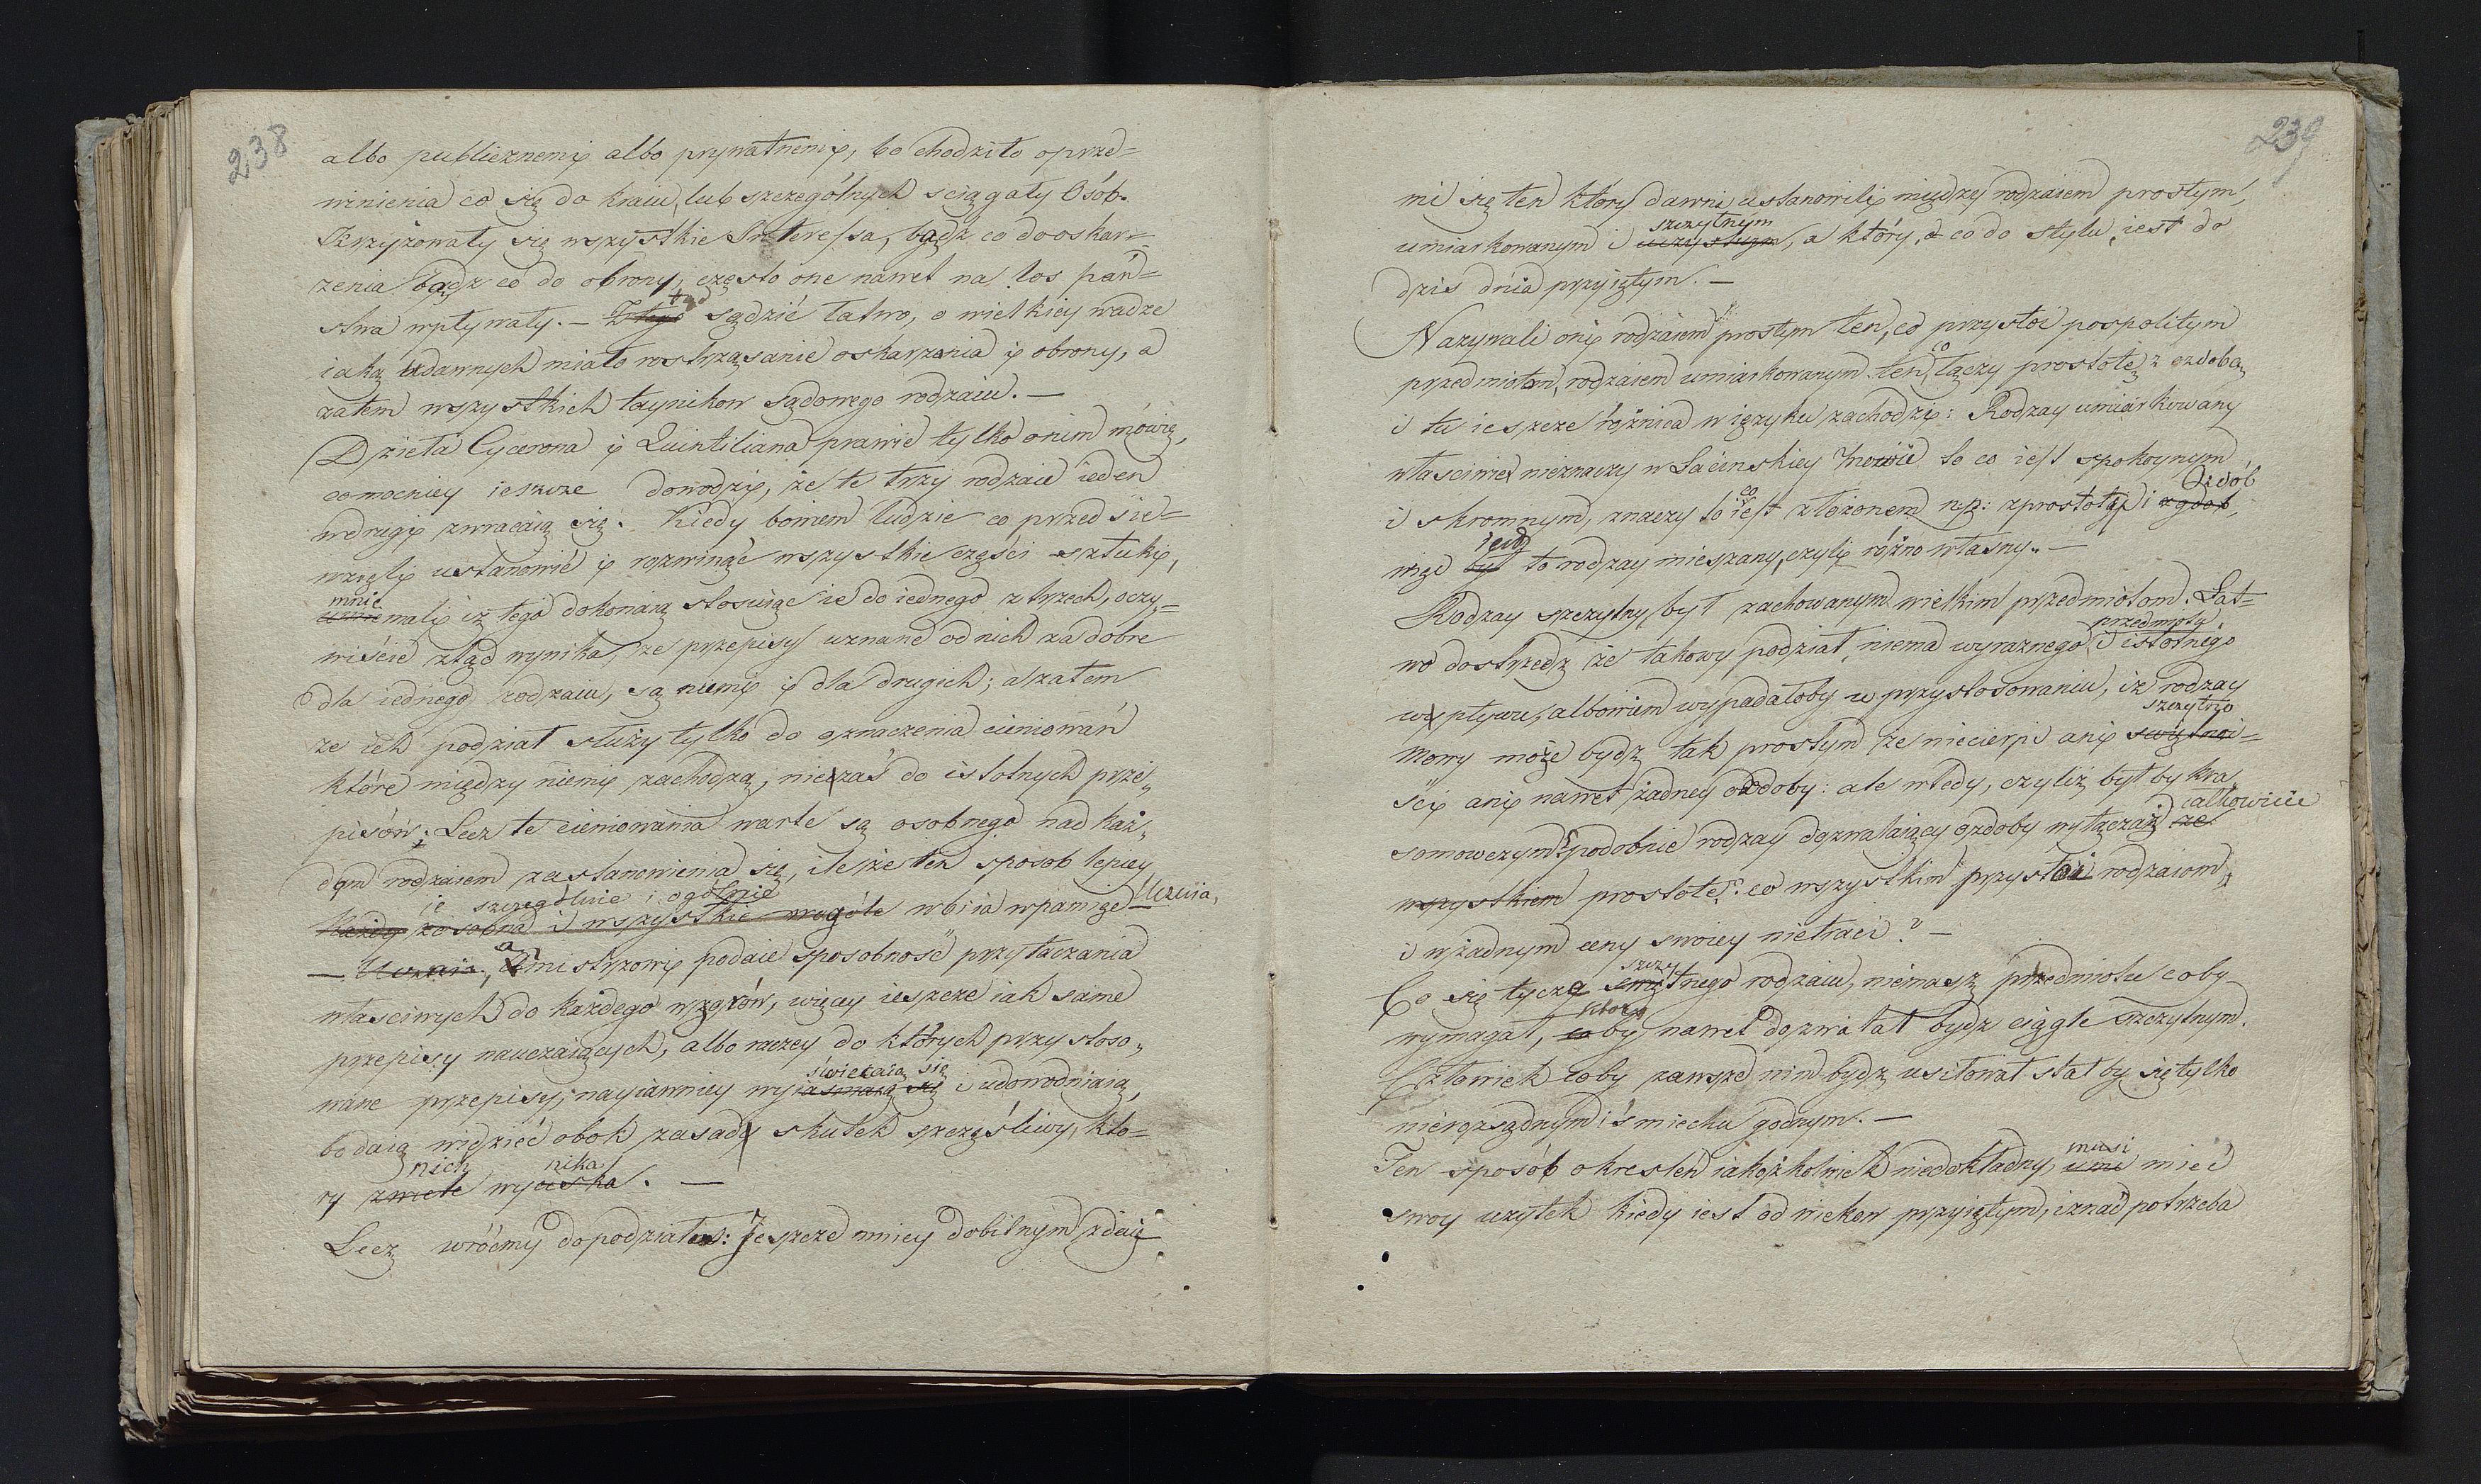 238
albo publicznemi albo prywatnemi, bo chodziło oprze=
winienia co się do kraiu, lub szczegółnych sciągały Osób.
Krzyżowały się wszystkie Interessa, bądz co do oskar=
żenia bądz co do obrony, często one nawet na los pań=
stwa wpływały. — Ztąd sądzić łatwo, o wielkiey wadze
iaką udawnych miało wstrząsanie oskarżania i obrony, a
zatem wszystkich taynikow sądowego rodzaiu. —
Dzieła Cycerona i Quintiliana prawie tylko onim mówią,
co mocniey ieszcze dowodzi, że te trzy rodzaie ieden
wdrugi zwracaią się. Kiedy bowiem ludzie co przed się=
wzięli ustanowić i rozwinąć wszystkie części sztuki,
mnie
mali iż tego dokonaią stosuiąc ie do iednego z trzech, oczy=
wiście ztąd wynika, że przepisy uznane od nich za dobre
dla iednego rodzaiu, są niemi i dla drugich; a zatem
że ich podział służy tylko do oznaczenia cieniowań
które między niemi zachodzą, nie zaś do istotnych prze„
pisów; Lecz te cieniowania warte są osobnego nad każ„
dym rodzaiem zastanowienia się, ile że ten sposob lepiey
ie szczegółnie i ogółnie
każdy ze sobna i wszystkie wogóle wbiia wpamięć Ucznia,
— Ucznia, a mistrzowi podaie sposobność przytaczania
własciwych do każdego wzorów, więcy ieszcze iak same
przepisy nauczaiących, albo raczey do których przystoso„
świecaią się
wane przepisy, nayiawniey wyiasniaią się i udowodniaią,
bo daią widzieć obok zasady skutek szczęśliwy, kto=
nich nika
ry zwiele wyciska. —
Lecz wróćmy do podziału: Jeszcze mniey dobitnym zdaię
239
mi się ten który dawni ustanowili między rodzaiem prostym,
szczytnym
umiarkowanym i, a który, co do stylu, iest do
dzis dnia przyiętym. —
Nazywali oni rodzaiem prostym ten, co przystoi pospolitym
co
przedmiotom, rodzaiem umiarkowanym ten, łączy prostotę z ozdobą
i tu ieszcze różnica w ięzyku zachodzi: Rodzay umiarkowany
własciwie nieznaczy w Łacinskiey mowie to co iest spokoynym
Ozdób
co
i skromnym, znaczy to iest złożonem np: zprostoty i ozdob,
iest
więc był to rodzay mieszany, czyli różno własny. —
Rodzay szczytny był zachowanym wielkim przedmiotom. Łat=
przedmiotu
wo dostrzedz że takowy podział, niema wyraznego i istotnego
wpływu, albowiem wypadałoby w przystosowaniu, iż rodzay
szczytno
mowy może bydz tak prostym że niecierpi ani swiętnoi=
ści ani nawet żadney ozdoby: ale wtedy, czyliż byłby kra„
całkowicie
somowczym? podobnie rodzay dozwalaiący ozdoby wyłączaż ze
wszystkiem prostotę? co wszystkim przystoi rodzaiom,
i w żadnym ceny swoiey nietraci? —
szczy
Co się tycze swiętnego rodzaiu, niemasz przedmiotu coby
któryby
wymagał, co by nawet dozwalał bydz ciągle szczytnym.
Człowiek coby zawsze nim bydz usiłował stałby się tylko
nierozsądnym i śmiechu godnym. —
musi
Ten sposób okresleń iakożkolwiek niedokładny, umi mieć
swoy użytek kiedy iest od wieków przyiętym, i znać potrzeba